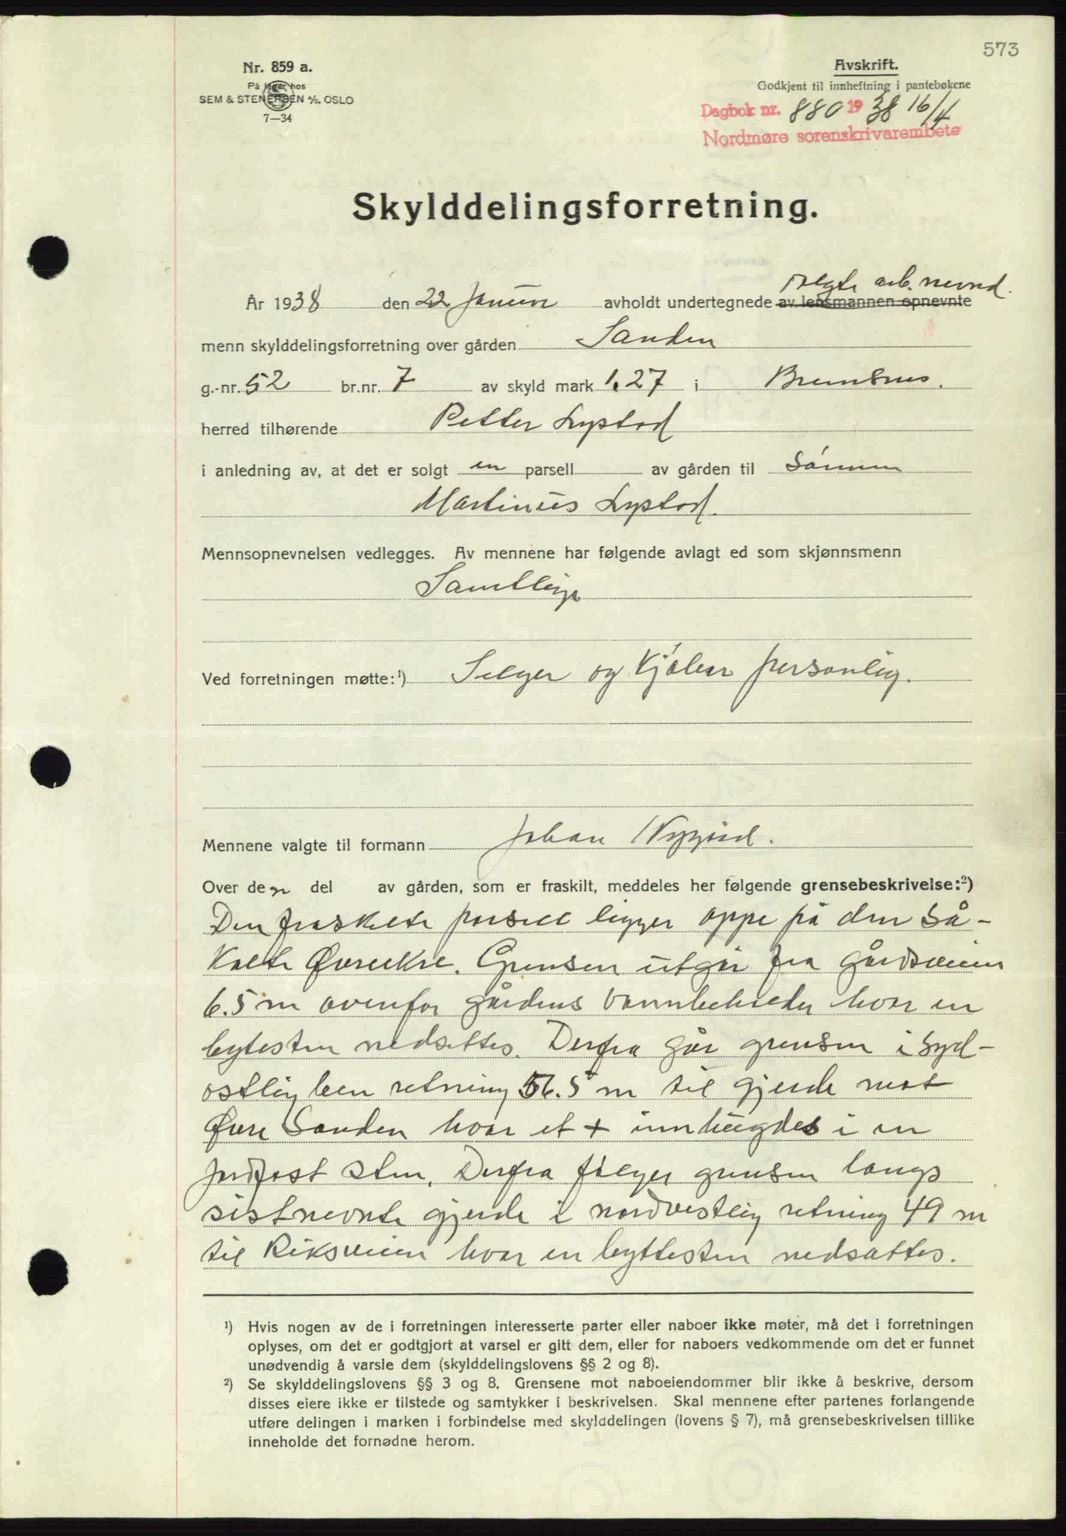 573
Nr. 859 a.
På lager hos
SEM & STENERSEN A/S, OSLO
7—34
Avskrift.
Godkjent til innheftning i pantebøkene
Dagbok nr. 880 1938 16/4
Nordmøre sorenskrivarembete
Skylddelingsforretning.
valgte arb. nevnd.
År 1938 den 22 Januar avholdt undertegnede av lensmannen opnevnte
menn skylddelingsforretning over gården Sanden
g.-nr. 52 br.nr. 7 av skyld mark 1.27 i Bremsnes.
herred tilhørende Petter Lystad
i anledning av, at det er solgt en parsell av gården til Sønnen
Martinus Lystad.
Mennsopnevnelsen vedlegges. Av mennene har følgende avlagt ed som skjønnsmenn
Samtlige
Ved forretningen møtte:¹) Selger og Kjøber personlig.
Mennene valgte til formann Johan
Over den del av gården, som er fraskilt, meddeles her følgende grensebeskrivelse:²)
Den fraskilte parsell ligger oppe på den så-
kalte Øvreekre. Grensen utgår fra gårdsveien
6.5 m ovenfor gårdens hvor en
bytesten nedsettes. Derfra går grensen i syd-
ostlig retning 56.5 m til gjerde mot
Øvre Sanden hvor et + innhugdes i en
jordfast sten. Derfra følger grensen langs
sistnevnte gjerde i nordvestlig retning 49 m
til Riksveien hvor en byttesten nedsattes.
¹) Hvis nogen av de i forretningen interesserte parter eller naboer ikke møter, må det i forretningen
oplyses, om det er godtgjort at varsel er gitt dem, eller for naboers vedkommende om det er funnet
unødvendig å varsle dem (skylddelingslovens §§ 2 og 8).
²) Se skylddelingslovens §§ 3 og 8. Grensene mot naboeiendommer blir ikke å beskrive, dersom
disses eiere ikke er tilstede og samtykker i beskrivelsen. Skal mennene efter partenes forlangende
utføre delingen i marken i forbindelse med skylddelingen (lovens § 7), må grensebeskrivelsen tillike
inneholde det fornødne herom.